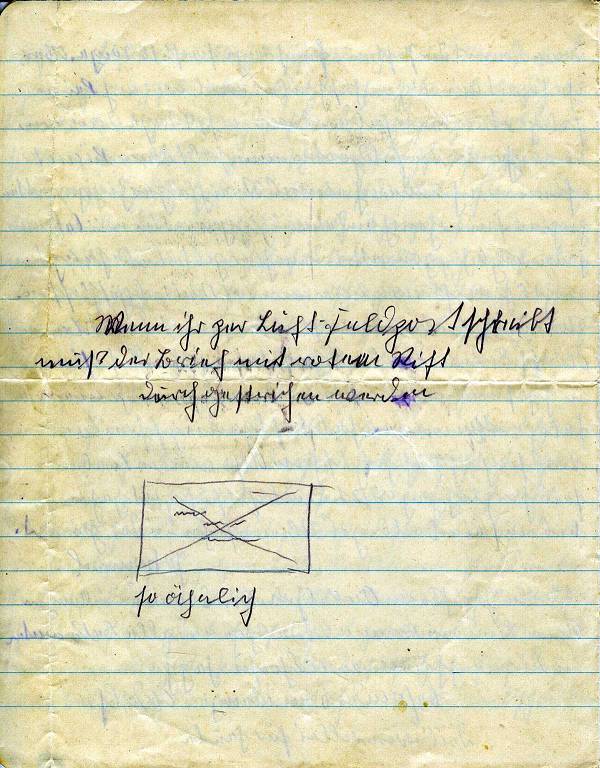 Wenn ihr per Luft-Feldpost schreibt
muß der Brief mit rotem Stift
durchgestrichen werden
so ähnlich